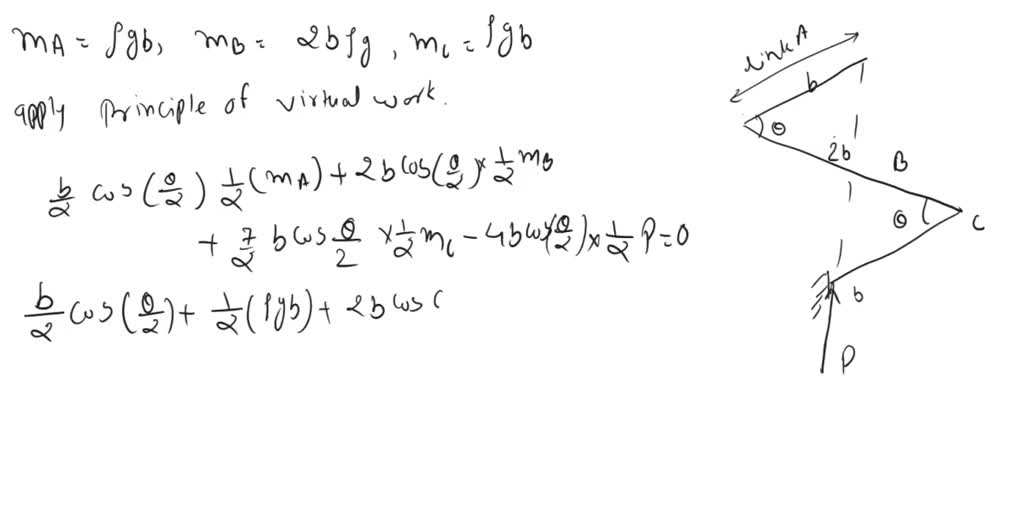 mA = ρgb, mB = 2bρg, mC = ρgb
apply Principle of virtual work.
b/2 cos(θ/2) 1/2 (mA) + 2b cos(θ/2) × 1/2 mB
+ 7/2 b cos θ/2 × 1/2 mC - 4b cos(θ/2) × 1/2 P = 0
b/2 cos(θ/2) + 1/2 (ρgb) + 2b cos (
Link A
b
θ
2b
B
θ
C
b
P